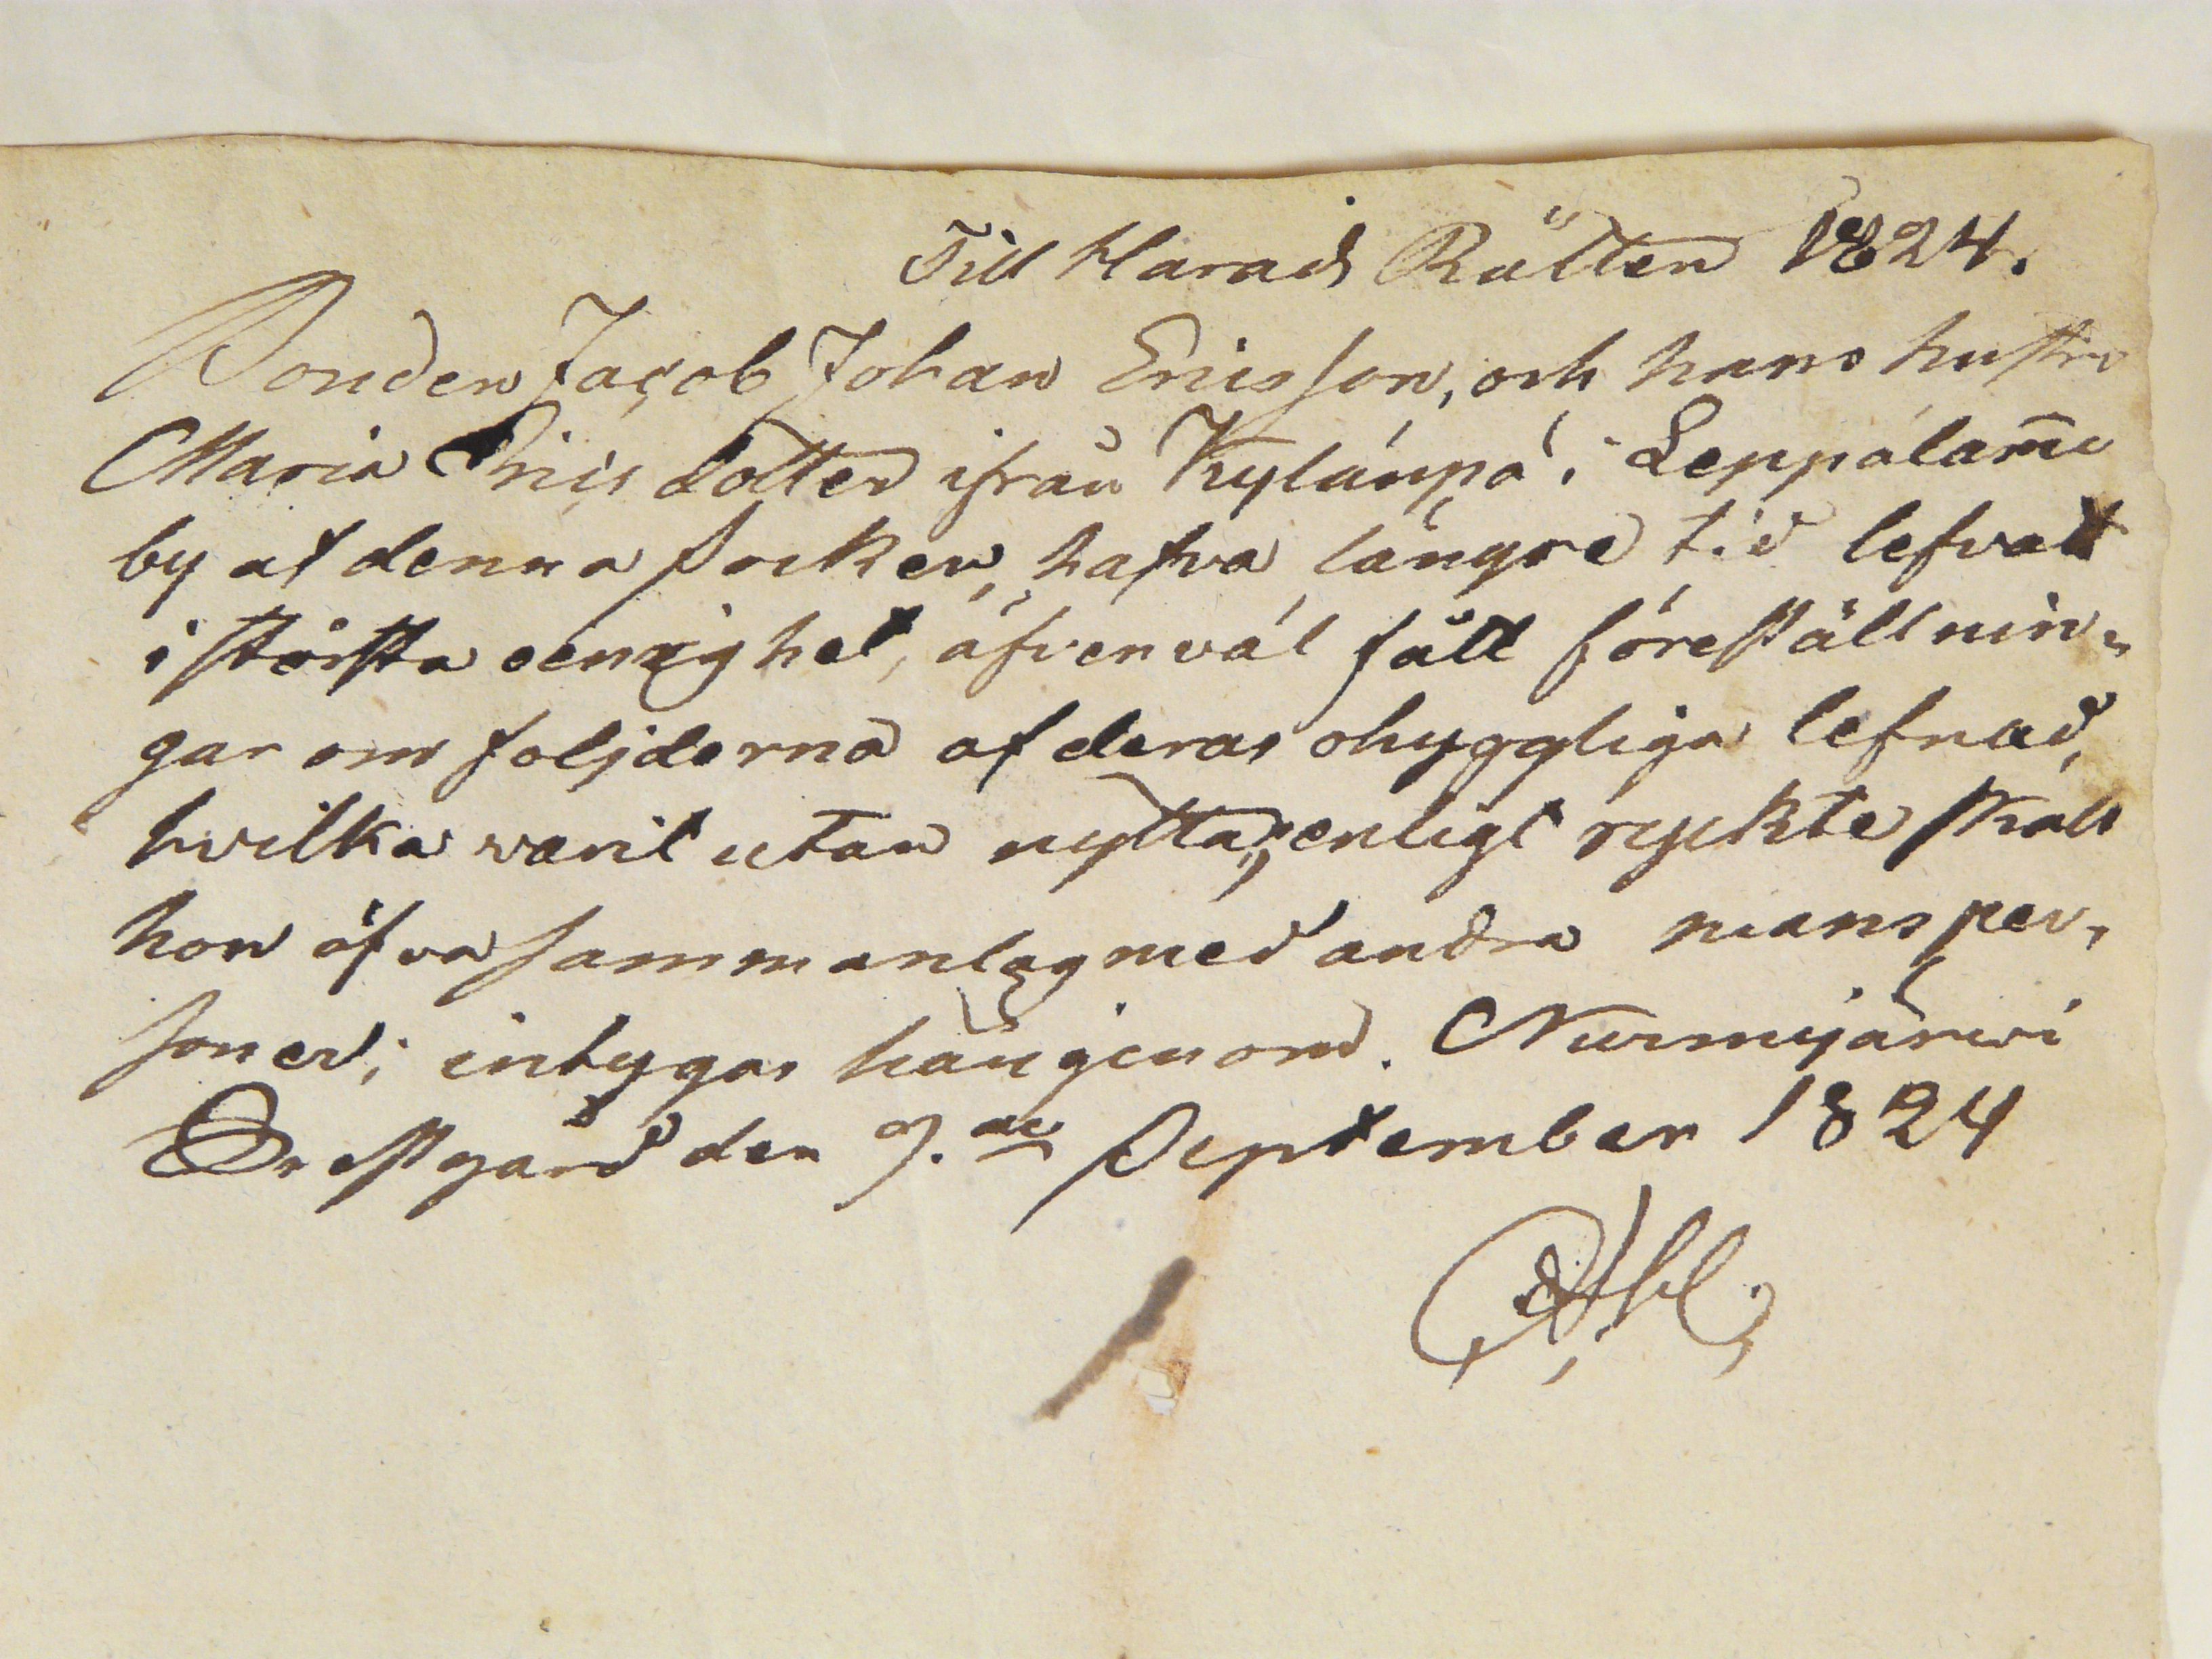 Till Härads Rätten 1824.
Bonden Jacob Johan Ericsson, och hans hustru
Maria Erics dotter ifrån Kylänpä i Leppälami
by af denna socken, hafva längre tid lefvat
i största oenighet, äfvenväl fått föreställnin-
gar om följderna af deras ohyggliga lefnad,
hvilka varit utan nytta; enligt ryckte skall
hon öfva sammanlag med andra mansper-
soner; intygas härigenom. Nurmijärvi
Prestgård den 9.de September 1824